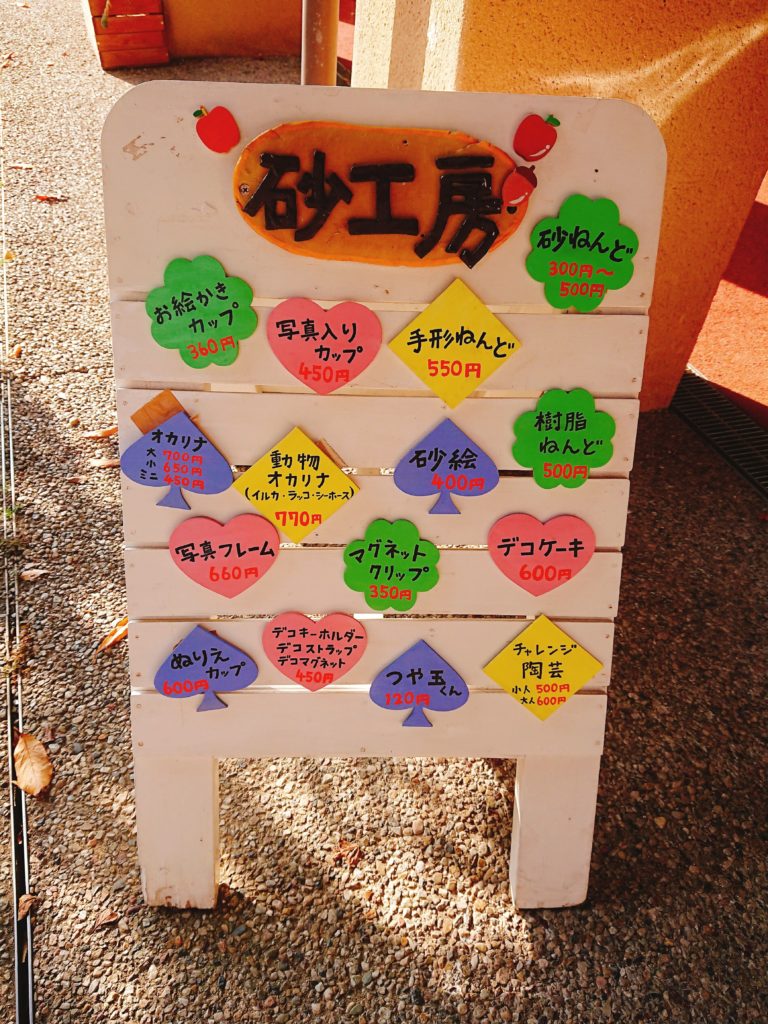 砂工房
砂ねんど
300円～
500円
お絵かき
カップ
360円
写真入り
カップ
450円
手形ねんど
550円
オカリナ
大 700円
小 650円
ミニ 450円
動物
オカリナ
(イルカ・ラッコ・シーホース)
770円
砂絵
400円
樹脂
ねんど
500円
写真フレーム
660円
マグネット
クリップ
350円
デコケーキ
600円
ぬりえ
カップ
600円
デコキーホルダー
デコストラップ
デコマグネット
450円
つや玉くん
120円
チャレンジ
陶芸
小人 500円
大人 600円